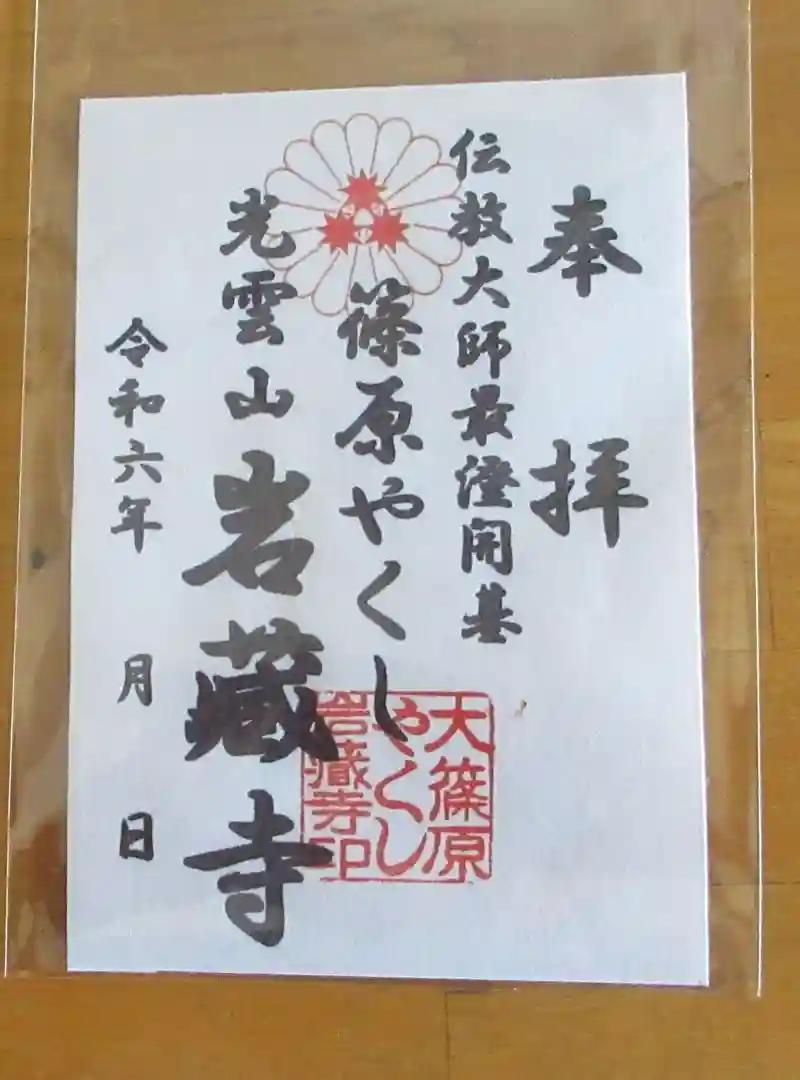 奉拝
伝教大師最澄開基
篠原やくし
光雲山岩蔵寺
令和六年 月 日
大篠原
やくし
岩蔵寺印